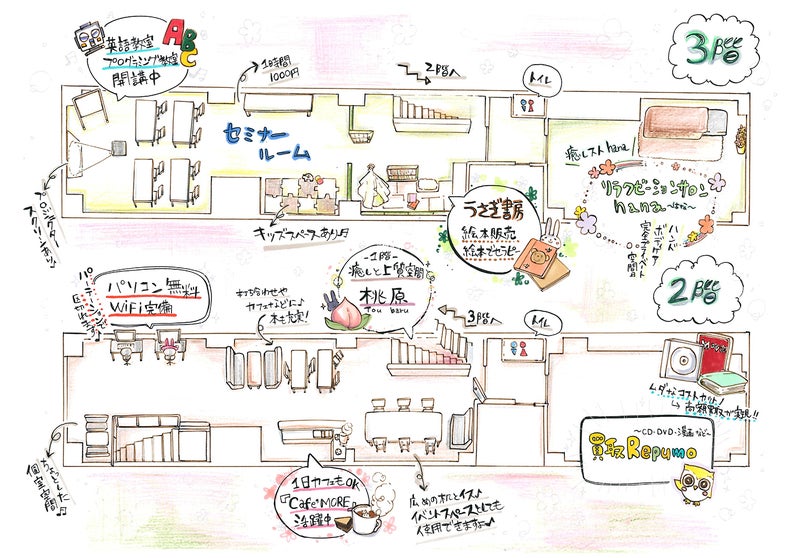 3階
英語教室
プログラミング教室
開講中
ABC
1時間
1000円
2階へ
トイレ
セミナー
ルーム
プロジェクター
スクリーンあり♪
キッズスペースあり♪
うさぎ書房
絵本販売
絵本でセラピー
癒しスト hana
リラクゼーションサロン
hana
～はな～
ハンド
ボディケア
完全プライベート
空間
2階
パソコン無料
WiFi完備
打ち合わせや
カフェなどに♪
本も充実!
－1階－
癒しと上質空間
桃原
Tou baru
3階へ
トイレ
ムダなコストカット!
高額買取が実現!!
～CD・DVD・漫画など～
買取Repumo
ちょっとした
個室空間♪
1日カフェもOK
『Cafe MORE』
活躍中
広めの机とイス♪
イベントスペースとしても
使用できますよ♪